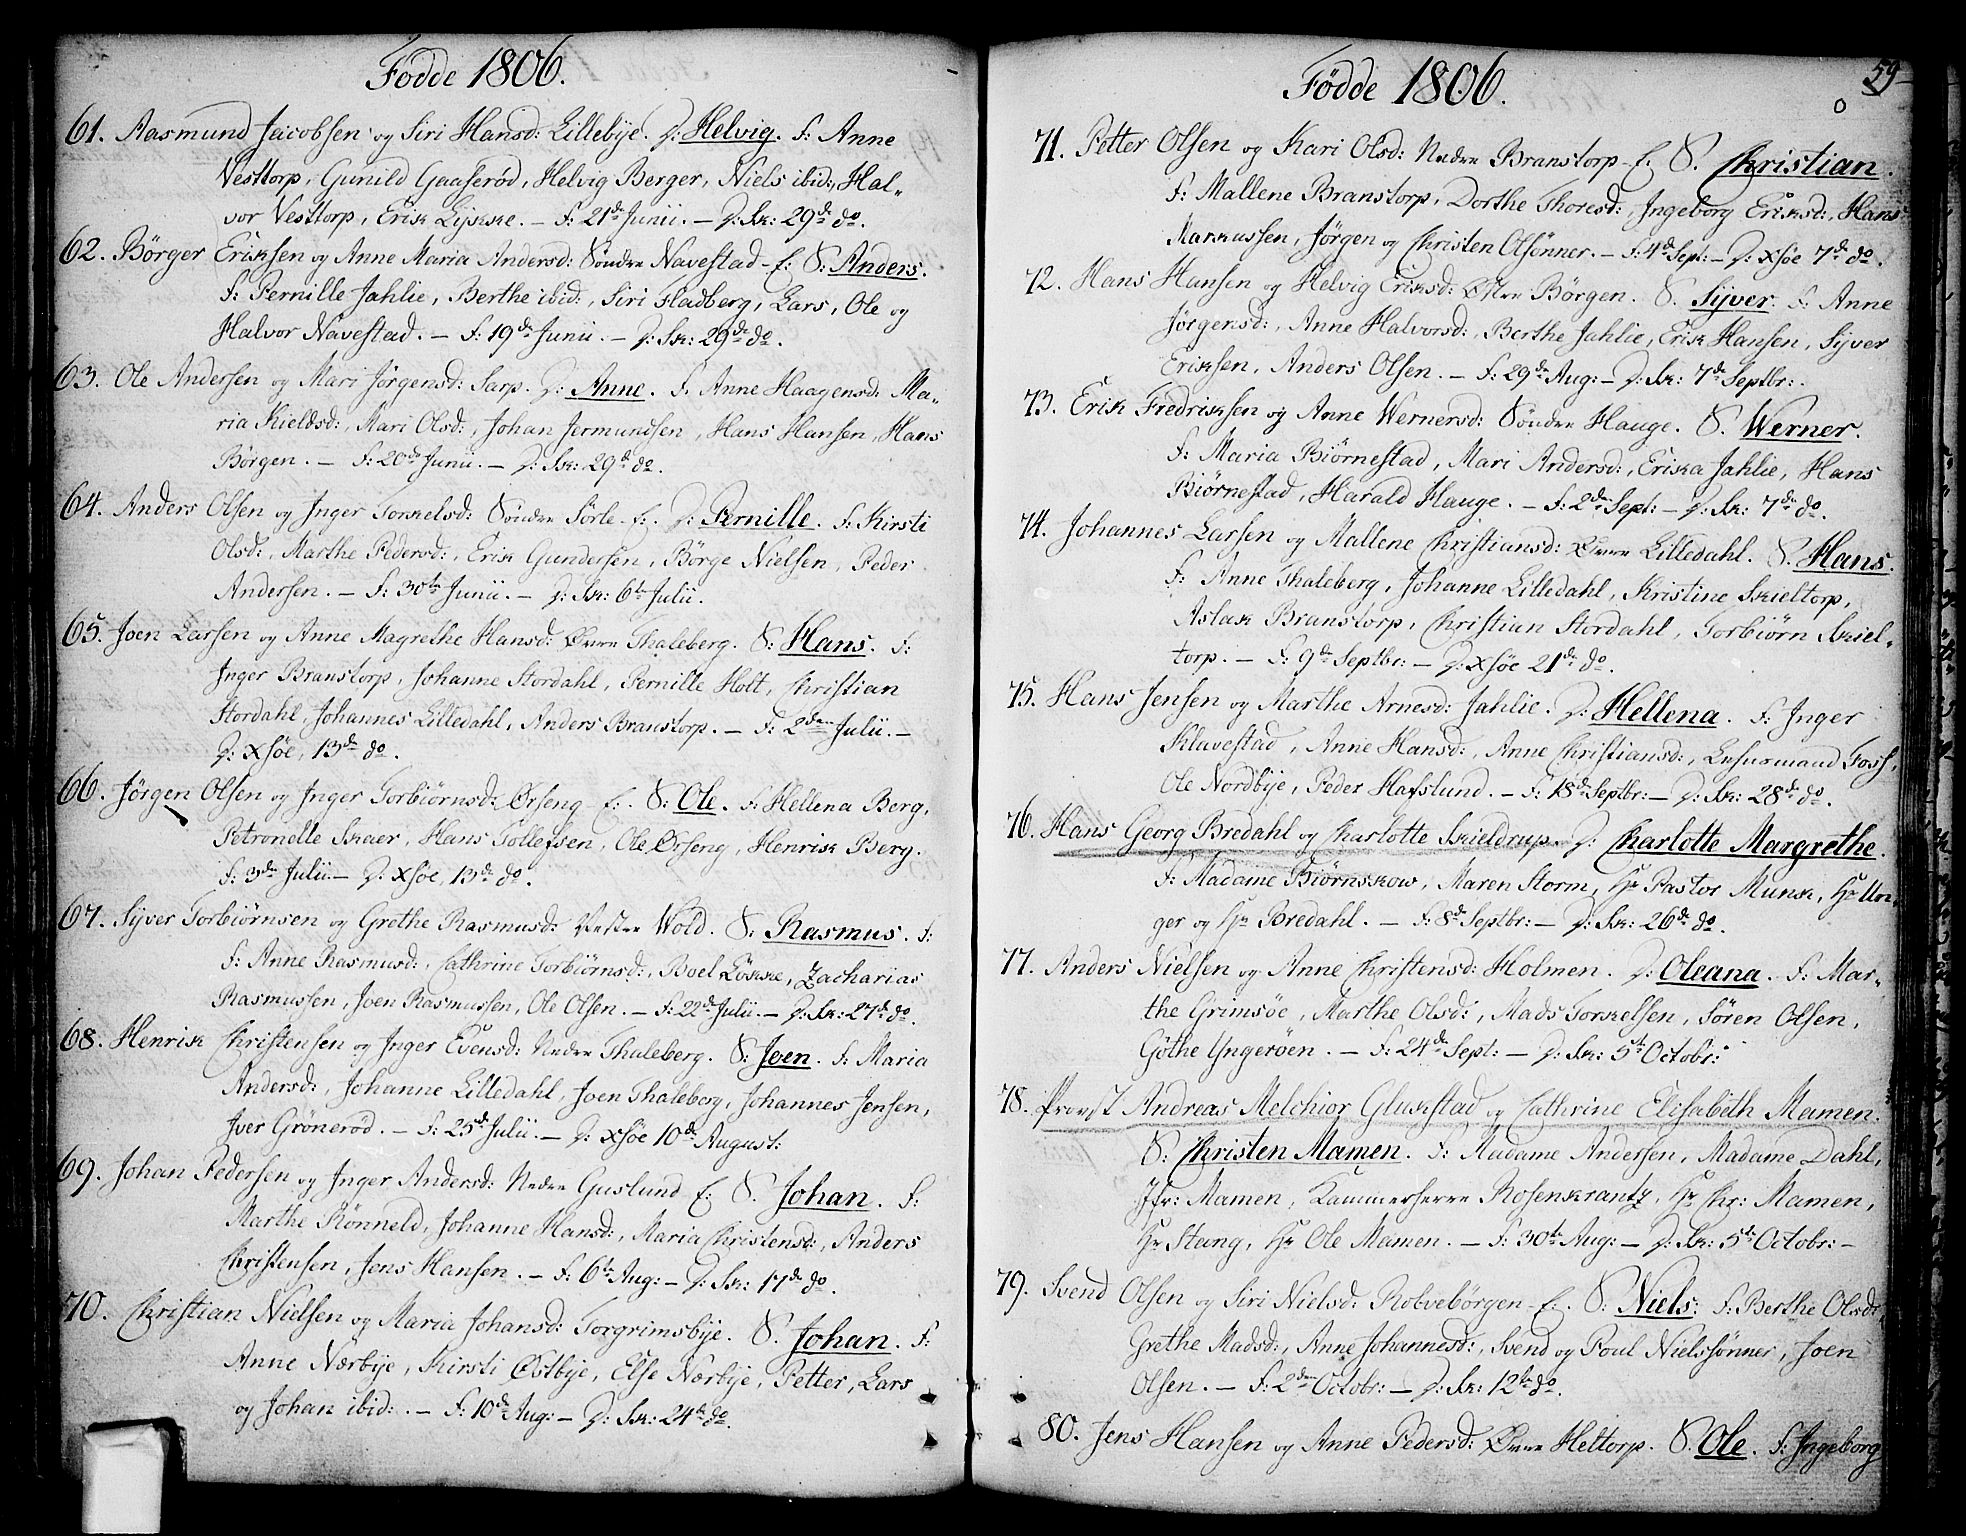 Fødde 1806.
61. Aasmund Jacobsen og Siri Hansd: Lillebye. D: Helvig. F: Anne
Vesttorp, Gunild Gaaserød, Helvig Berger, Niels ibid:, Hal„
vor Vesttorp, Erik Lyskke. — F: 21de Junii. — D: Sk: 29de do.
62. Börger Eriksen og Anne Maria Andersd: Søndre Navestad - E: S: Anders.
F: Pernille Jahlie, Berthe ibid:, Siri Fladberg, Lars, Ole og
Halvor Navestad. — F: 19de Junii. — D: Sk: 29de do.
63. Ole Andersen og Mari Jörgensd: Sarp. D: Anne. F: Anne Haagensd: Ma„
ria Kieldsd:, Mari Olsd:, Johan Jermundsen, Hans Hansen, Hans
Börgen. — F: 20de Junii. — D: Sk: 29de do.
64. Anders Olsen og Inger Torkelsd: Søndre Sörle - E: D: Pernille. F: Kirsti
Olsd:, Marthe Pedersd:, Erik Gundersen, Börge Nielsen, Peder
Andersen. — F: 30te Junii. — D: Sk: 6te Julii.
65. Joen Larsen og Anne Magrethe Hansd: Øvre Thaleberg. S: Hans. F:
Inger Branstorp, Johanne Stordahl, Pernille Holt, Christian
Stordahl, Johannes Lilledahl, Anders Branstorp. — F: 2den Julii. —
D: xsöe, 13de do.
66. Jörgen Olsen og Inger Torbiörnsd: Ørseng - E: S: Ole. F: Hellena Berg,
Petronelle Skaer, Hans Tollefsen, Ole Ørseng, Henrik Berg.
F: 3de Julii — D: xsöe, 13de do.
67. Syver Torbiörnsen og Grethe Rasmusd: Vestre Wold. S: Rasmus. F:
F: Anne Rasmusd:, Cathrine Torbiörnsd:, Boel Löskke, Zacharias
Rasmussen, Joen Rasmussen, Ole Olsen. — F: 22de Julii — D: Sk: 27de do.
68. Henrik Christensen og Inger Evensd: Nedre Thaleberg. S: Joen. F: Maria
Andersd:, Johanne Lilledahl, Joen Thaleberg, Johannes Jensen,
Iver Grönerød. — F: 25de Julii — D: xsöe 10de August:
69. Johan Pedersen og Inger Andersd: Nedre Guslund E: S. Johan. F:
Marthe Rönneld, Johanne Hansd:, Maria Christensd:, Anders
Christensen, Jens Hansen. — F: 6te Aug: — D: Sk: 17de do.
70. Christian Nielsen og Maria Johansd: Torgrimsbye. S. Johan. F:
Anne Nærbye, Kirsti Østbye, Else Nærbye, Petter, Lars
og Johan ibid:. — F: 10de Aug: — D: Sk: 24de do.
Fødde 1806.
59
71. Petter Olsen og Kari Olsd: Nedre Branstorp - E. S. Christian.
F: Mallene Branstorp, Dorthe Thoresd:, Ingeborg Eriksd:, Hans
Markussen, Jörgen og Christen Olsönner. — F: 4de Sept: — D: xsöe 7de do.
72. Hans Hansen og Helvig Eriksd: Østre Börgen. S. Syver. F: Anne
Jörgensd:, Anne Halvorsd:, Berthe Jahlie, Erik Hansen, Syver
Eriksen, Anders Olsen. — F: 29de Aug: — D: Sk: 7de Septbr:.
73. Erik Fredriksen og Anne Wernersd: Søndre Hauge. S. Werner.
F: Maria Biörnestad, Mari Andersd:, Erika Jahlie, Hans
Biörnestad, Harald Hauge. — F: 2den Sept: — D: Sk: 7de do.
74. Johannes Larsen og Mallene Christiansd: Øvre Lilledahl. S. Hans.
F: Anne Thaleberg, Johanne Lilledahl, Kristine Skieltorp,
Aslak Branstorp, Christian Stordahl, Torbiörn Skiel„
torp. — F: 9de Septbr: — D: xsöe 21de do.
75. Hans Jensen og Marthe Arnesd: Jahlie. D: Hellena. F: Inger
Kluvestad, Anne Hansd:, Anne Christiansd:, Lensmand Foss,
Ole Nordbye, Peder Hafslund. — F: 18de Septbr: — D: Sk: 28de do.
76. Hans Georg Bredahl og Charlotte Skieldrup. D: Charlotte Margrethe.
F: Madame Biörnskow, Maren Storm, Hr Pastor Munk, Hr Un„
ger og Hr Bredahl. — F: 8de Septbr: — D: Sk: 26de do.
77. Anders Nielsen og Anne Christensd: Holmen. D: Oleana. F: Mar„
the Grimsöe, Marthe Olsd:, Mads Torkelsen, Sören Olsen,
Göthe Yngeröen. — F: 24de Sept: — D: Sk: 5te Octobr:
78. Provst Andreas Melchior Glukstad og Cathrine Elisabeth Mamen.
S: Christen Mamen. F: Madame Andersen, Madame Dahl,
Jfr: Mamen, Kammerherre Rosenkrantz, Hr Chr: Mamen,
Hr Stang, Hr Ole Mamen. — F: 30te Aug: — D: Sk: 5te Octobr: —
79. Svend Olsen og Siri Nielsd: Rokvebörgen - E:. S: Niels: F: Berthe Olsd:,
Grethe Madsd:, Anne Johannesd:, Svend og Poul Nielssönner, Joen
Olsen. — F: 2den Octobr: — D: Sk: 12te do.
80. Jens Hansen og Anne Pedersd: Øvre Heltorp. S. Ole. F: Ingeborg